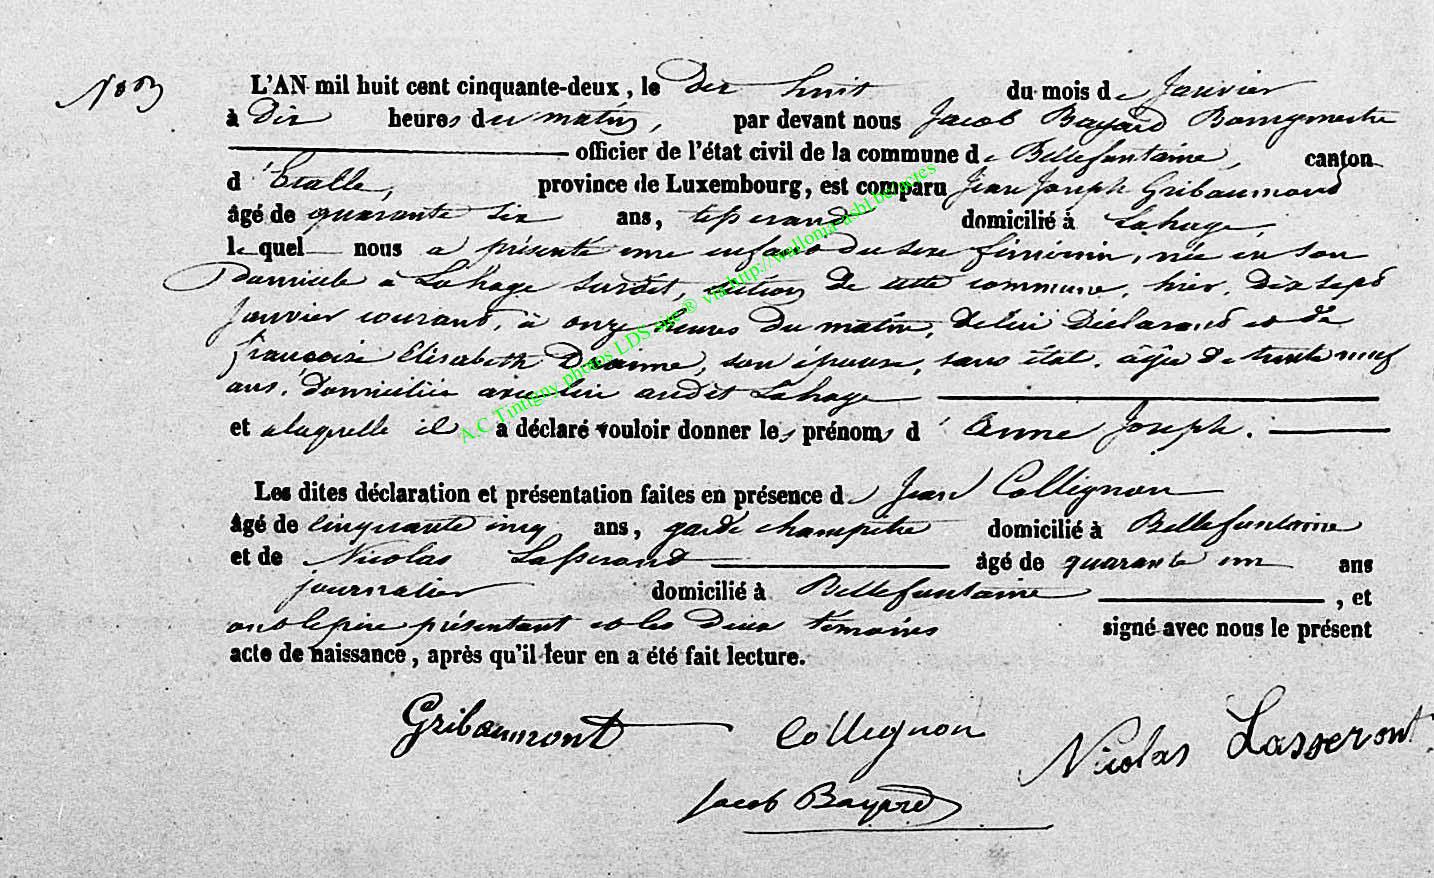 N° 3
L'AN mil huit cent cinquante-deux, le dix huit du mois de Janvier
à Dix heures du matin, par devant nous Jacob Bayard Bourgmestre
officier de l'état civil de la commune de Bellefontaine, canton
d'Etalle, province de Luxembourg, est comparu Jean Joseph Gribaumont
âgé de quarante six ans, tisserand domicilié à Lahage,
lequel nous a présenté une enfant du sexe féminin, née en son
Domicile à Lahage susdit, section de cette commune, hier, Dix sept
Janvier courant, à onze heures du matin, de lui Déclarant et de
françoise Elisabeth son épouse, sans état, âgée de trente neuf
ans, domiciliée avec lui audit Lahage
et a laquelle il a déclaré vouloir donner les prénoms d'Anne Joseph.
Les dites déclaration et présentation faites en présence de Jean Collignon
âgé de cinquante cinq ans, garde champêtre domicilié à Bellefontaine
et de Nicolas Lasserand âgé de quarante un ans
journalier domicilié à Bellefontaine, et
ont le père présentant et les deux témoins signé avec nous le présent
acte de naissance, après qu'il leur en a été fait lecture.
Gribaumont Collignon Nicolas Lasseront
Jacob Bayard
A.C Tintigny photos LDS site ® via http://wallonia-asbl.be/actes